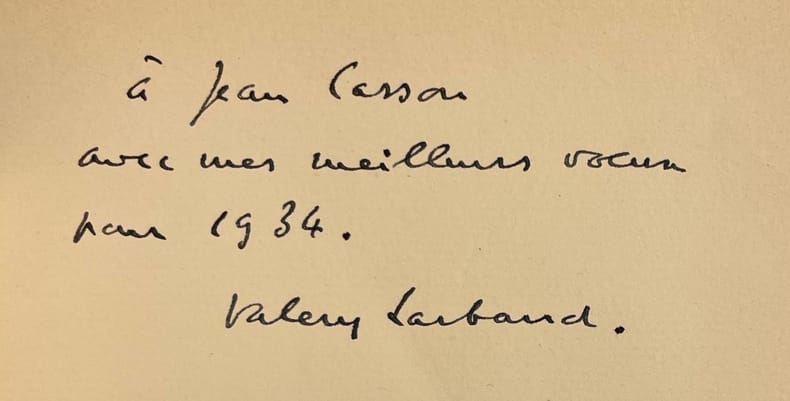 à Jean Cassou
avec mes meilleurs voeux
pour 1934.
Valery Larbaud.